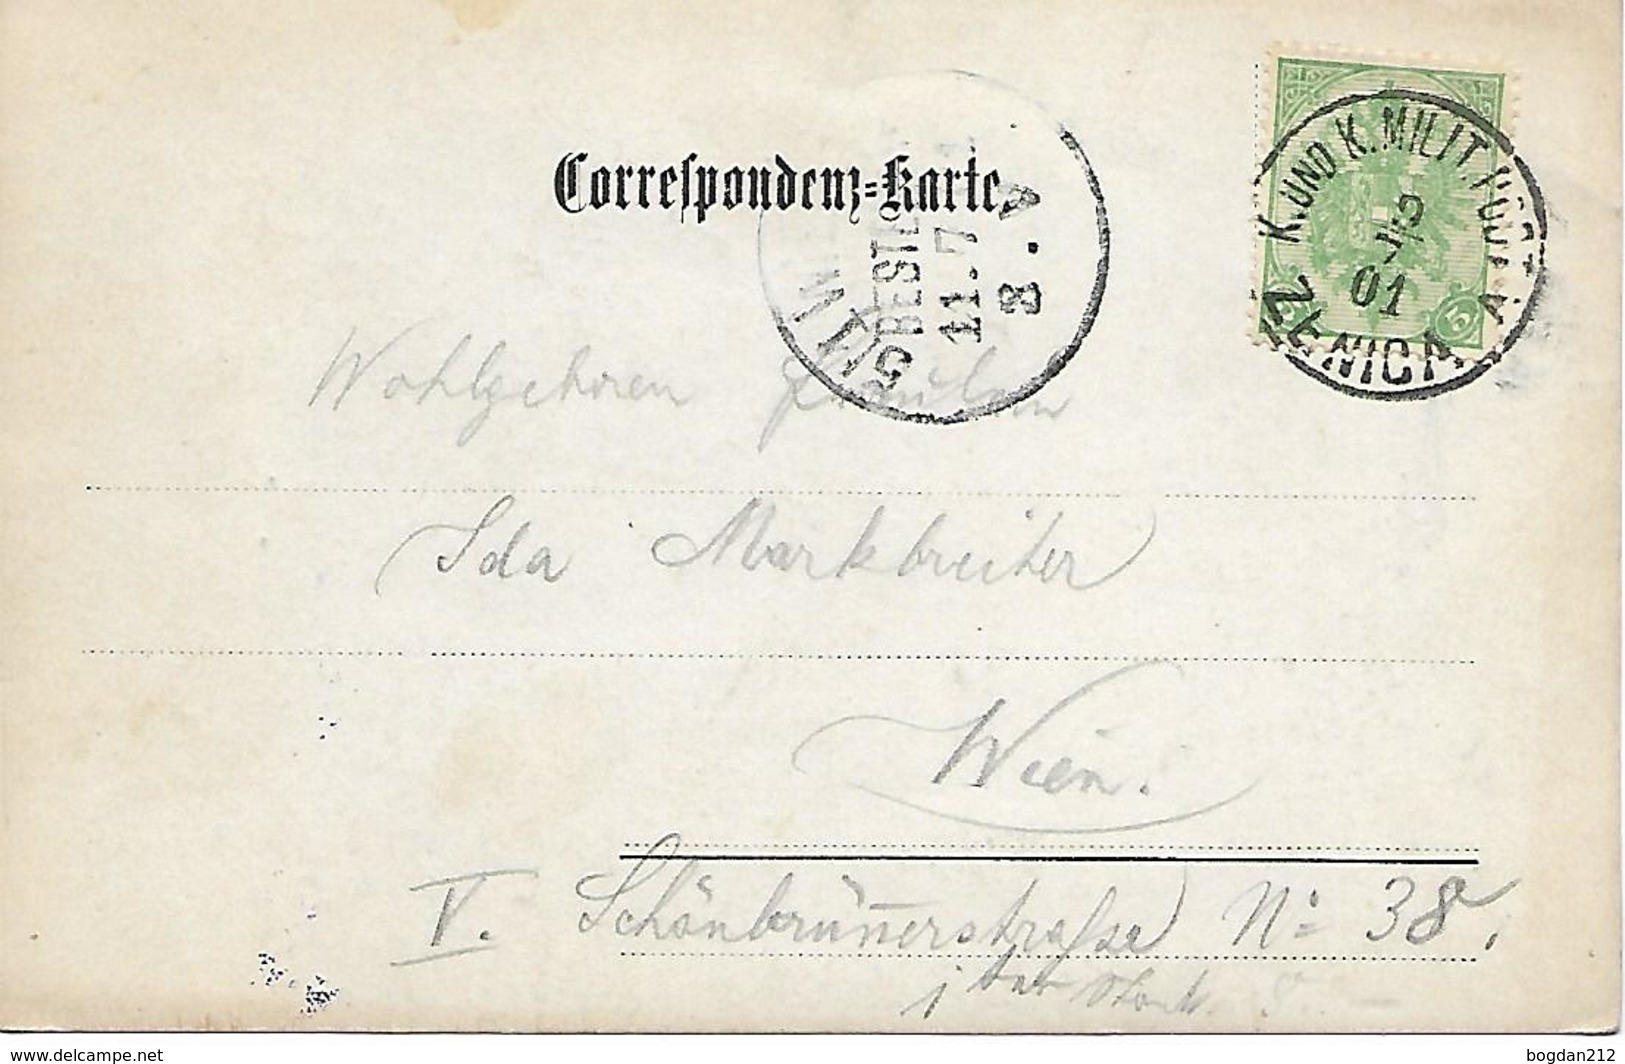 Correspondenz=Karte
K. UND K. MILIT. POST
9
5
01
A
ZENICA
5
WIEN
BESTE
11.7
8.V
Wohlgeboren Fräulein
Ida Markbreiter
Wien.
V. Schönbrunnerstraße No 38,
1ter Stock
www.delcampe.net
bogdan212